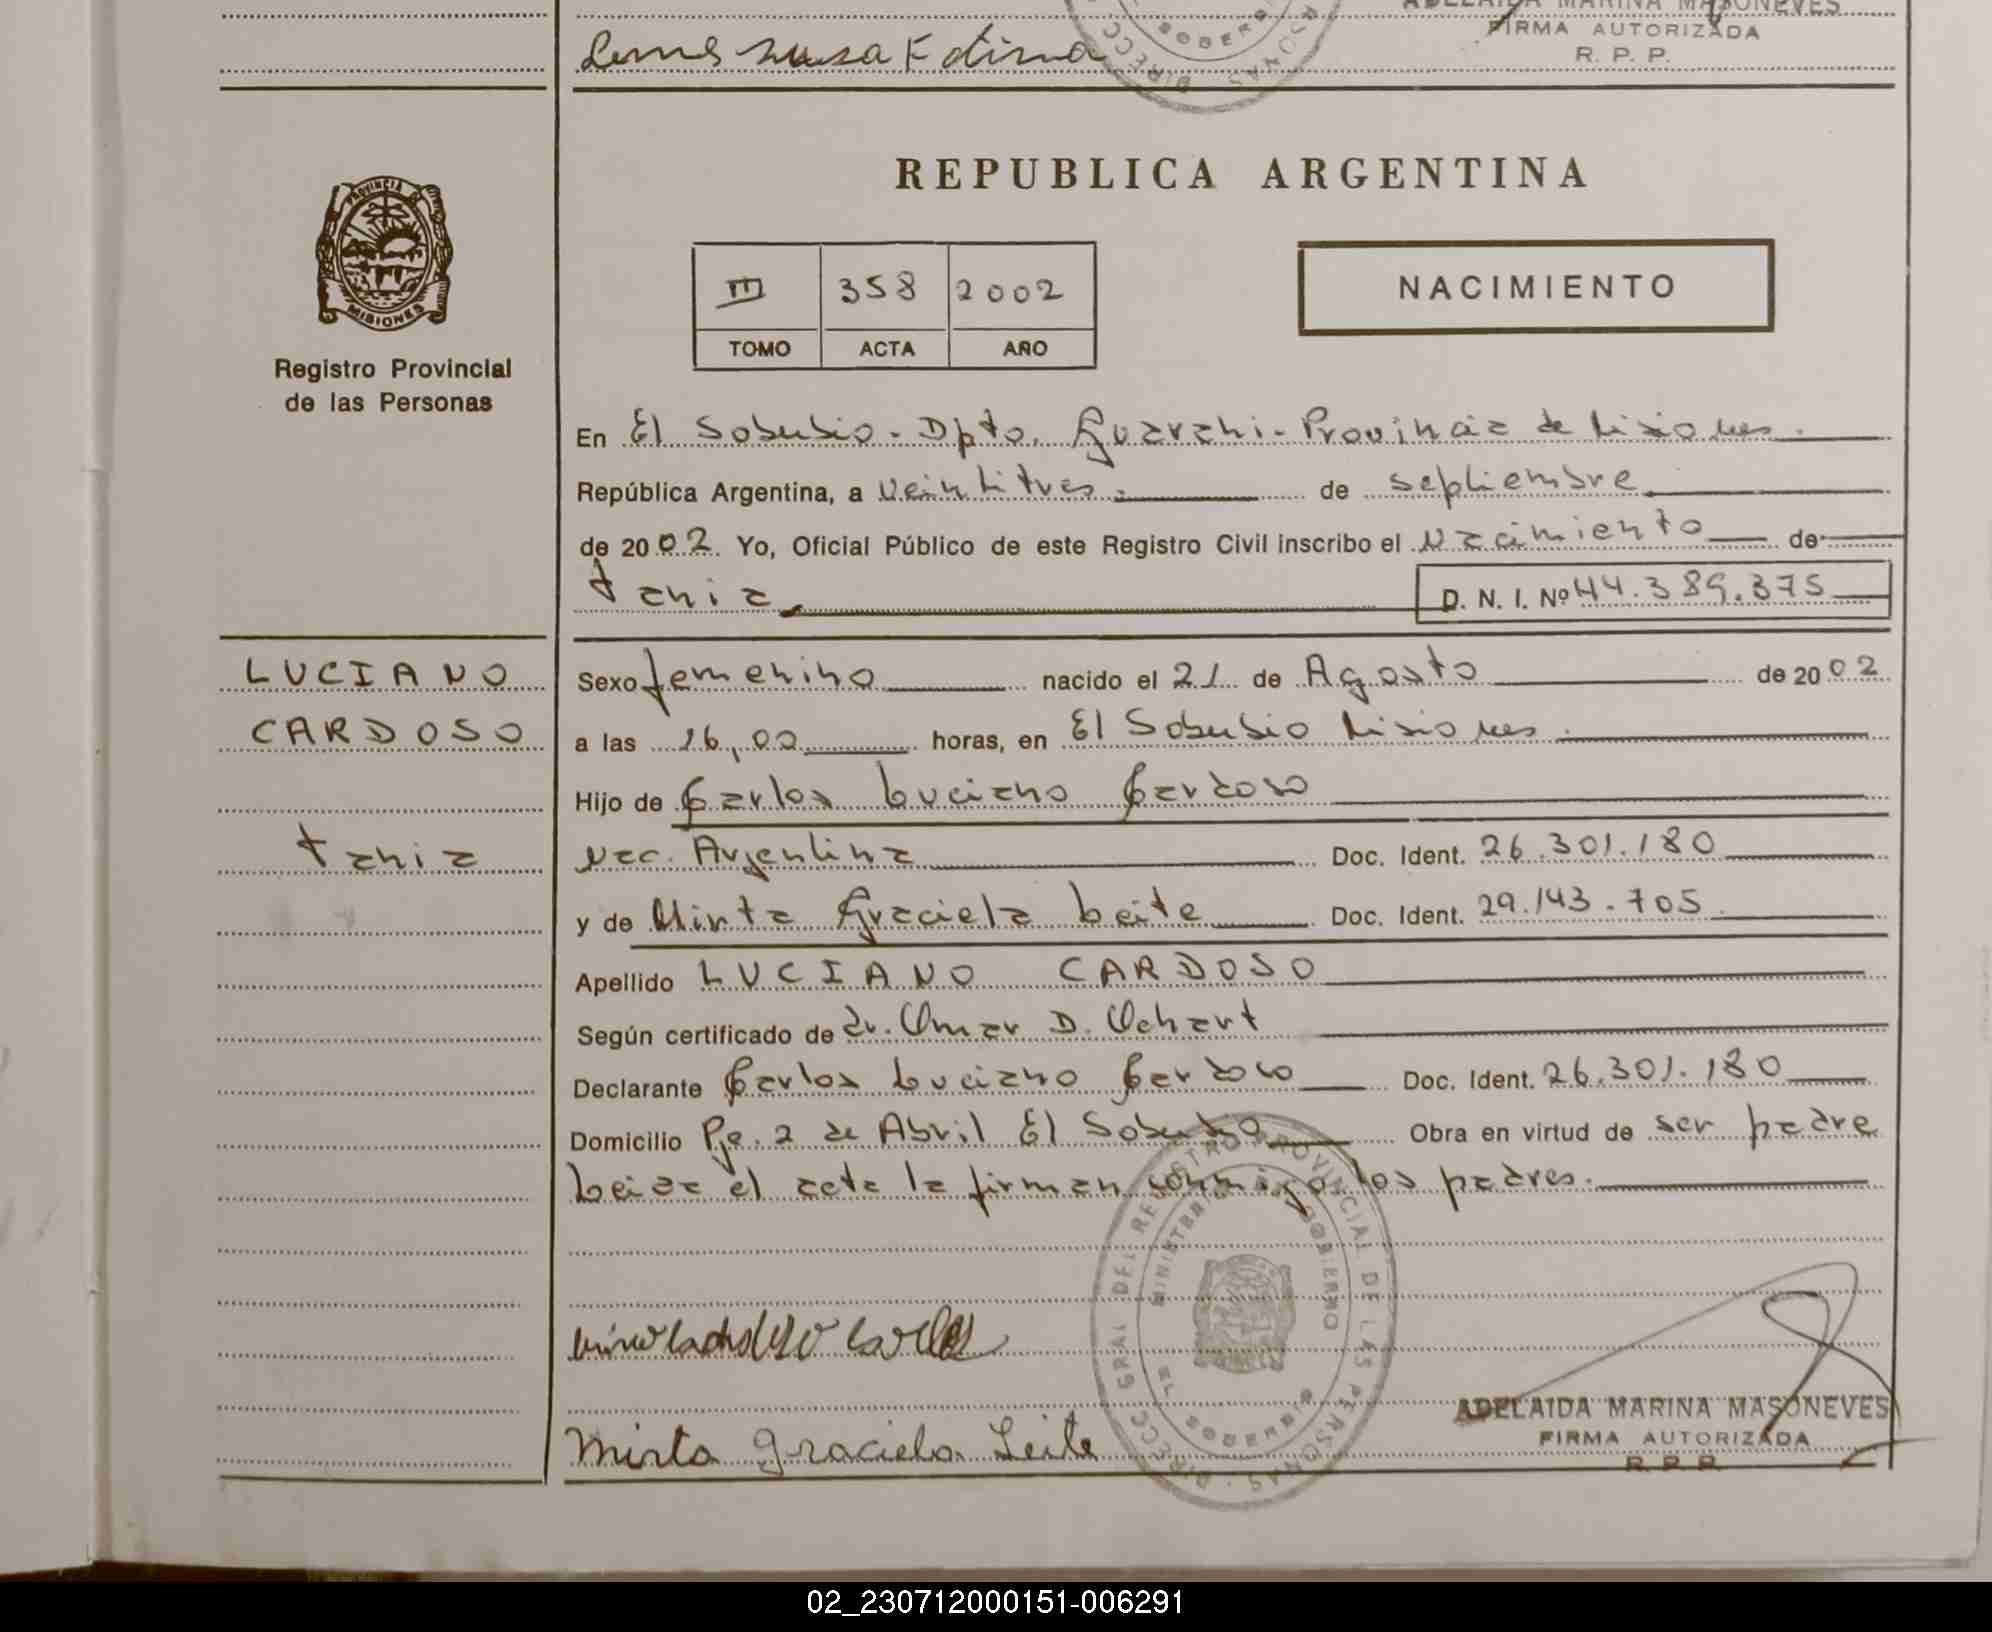 Lemes Susa Edina
ADELAIDA MARINA MASONEVES
FIRMA AUTORIZADA
R. P. P.
PROVINCIA DE
MISIONES
Registro Provincial
de las Personas
REPUBLICA ARGENTINA
III 358 2002
TOMO ACTA AÑO
NACIMIENTO
En El Soberbio - Dpto. Guarani - Provincia de Misiones.
República Argentina, a veintitres. de septiembre
de 2002. Yo, Oficial Público de este Registro Civil inscribo el nacimiento de
tania
D. N. I. Nº 44.389.375
LUCIANO
CARDOSO
tania
Sexo femenino nacido el 21 de Agosto de 2002
a las 16,00 horas, en El Soberbio Misiones.
Hijo de Carlos Luciano Cardoso
Nac. Argentina Doc. Ident. 26.301.180
y de Mirta Graciela Leite Doc. Ident. 29.143.705
Apellido LUCIANO CARDOSO
Según certificado de Dr. Omar D. Ochart
Declarante Carlos Luciano Cardoso Doc. Ident. 26.301.180
Domicilio Pje. 2 de Abril El Soberbio Obra en virtud de ser padre
Leida el acta la firman conmigo los padres.
DIRECC GRAL DEL REGISTRO PROVINCIAL DE LAS PERSONAS
MINISTERIO DE GOBIERNO
EL SOBERBIO
Mirta Graciela Leite
ADELAIDA MARINA MASONEVES
FIRMA AUTORIZADA
R. P. P.
02_230712000151-006291